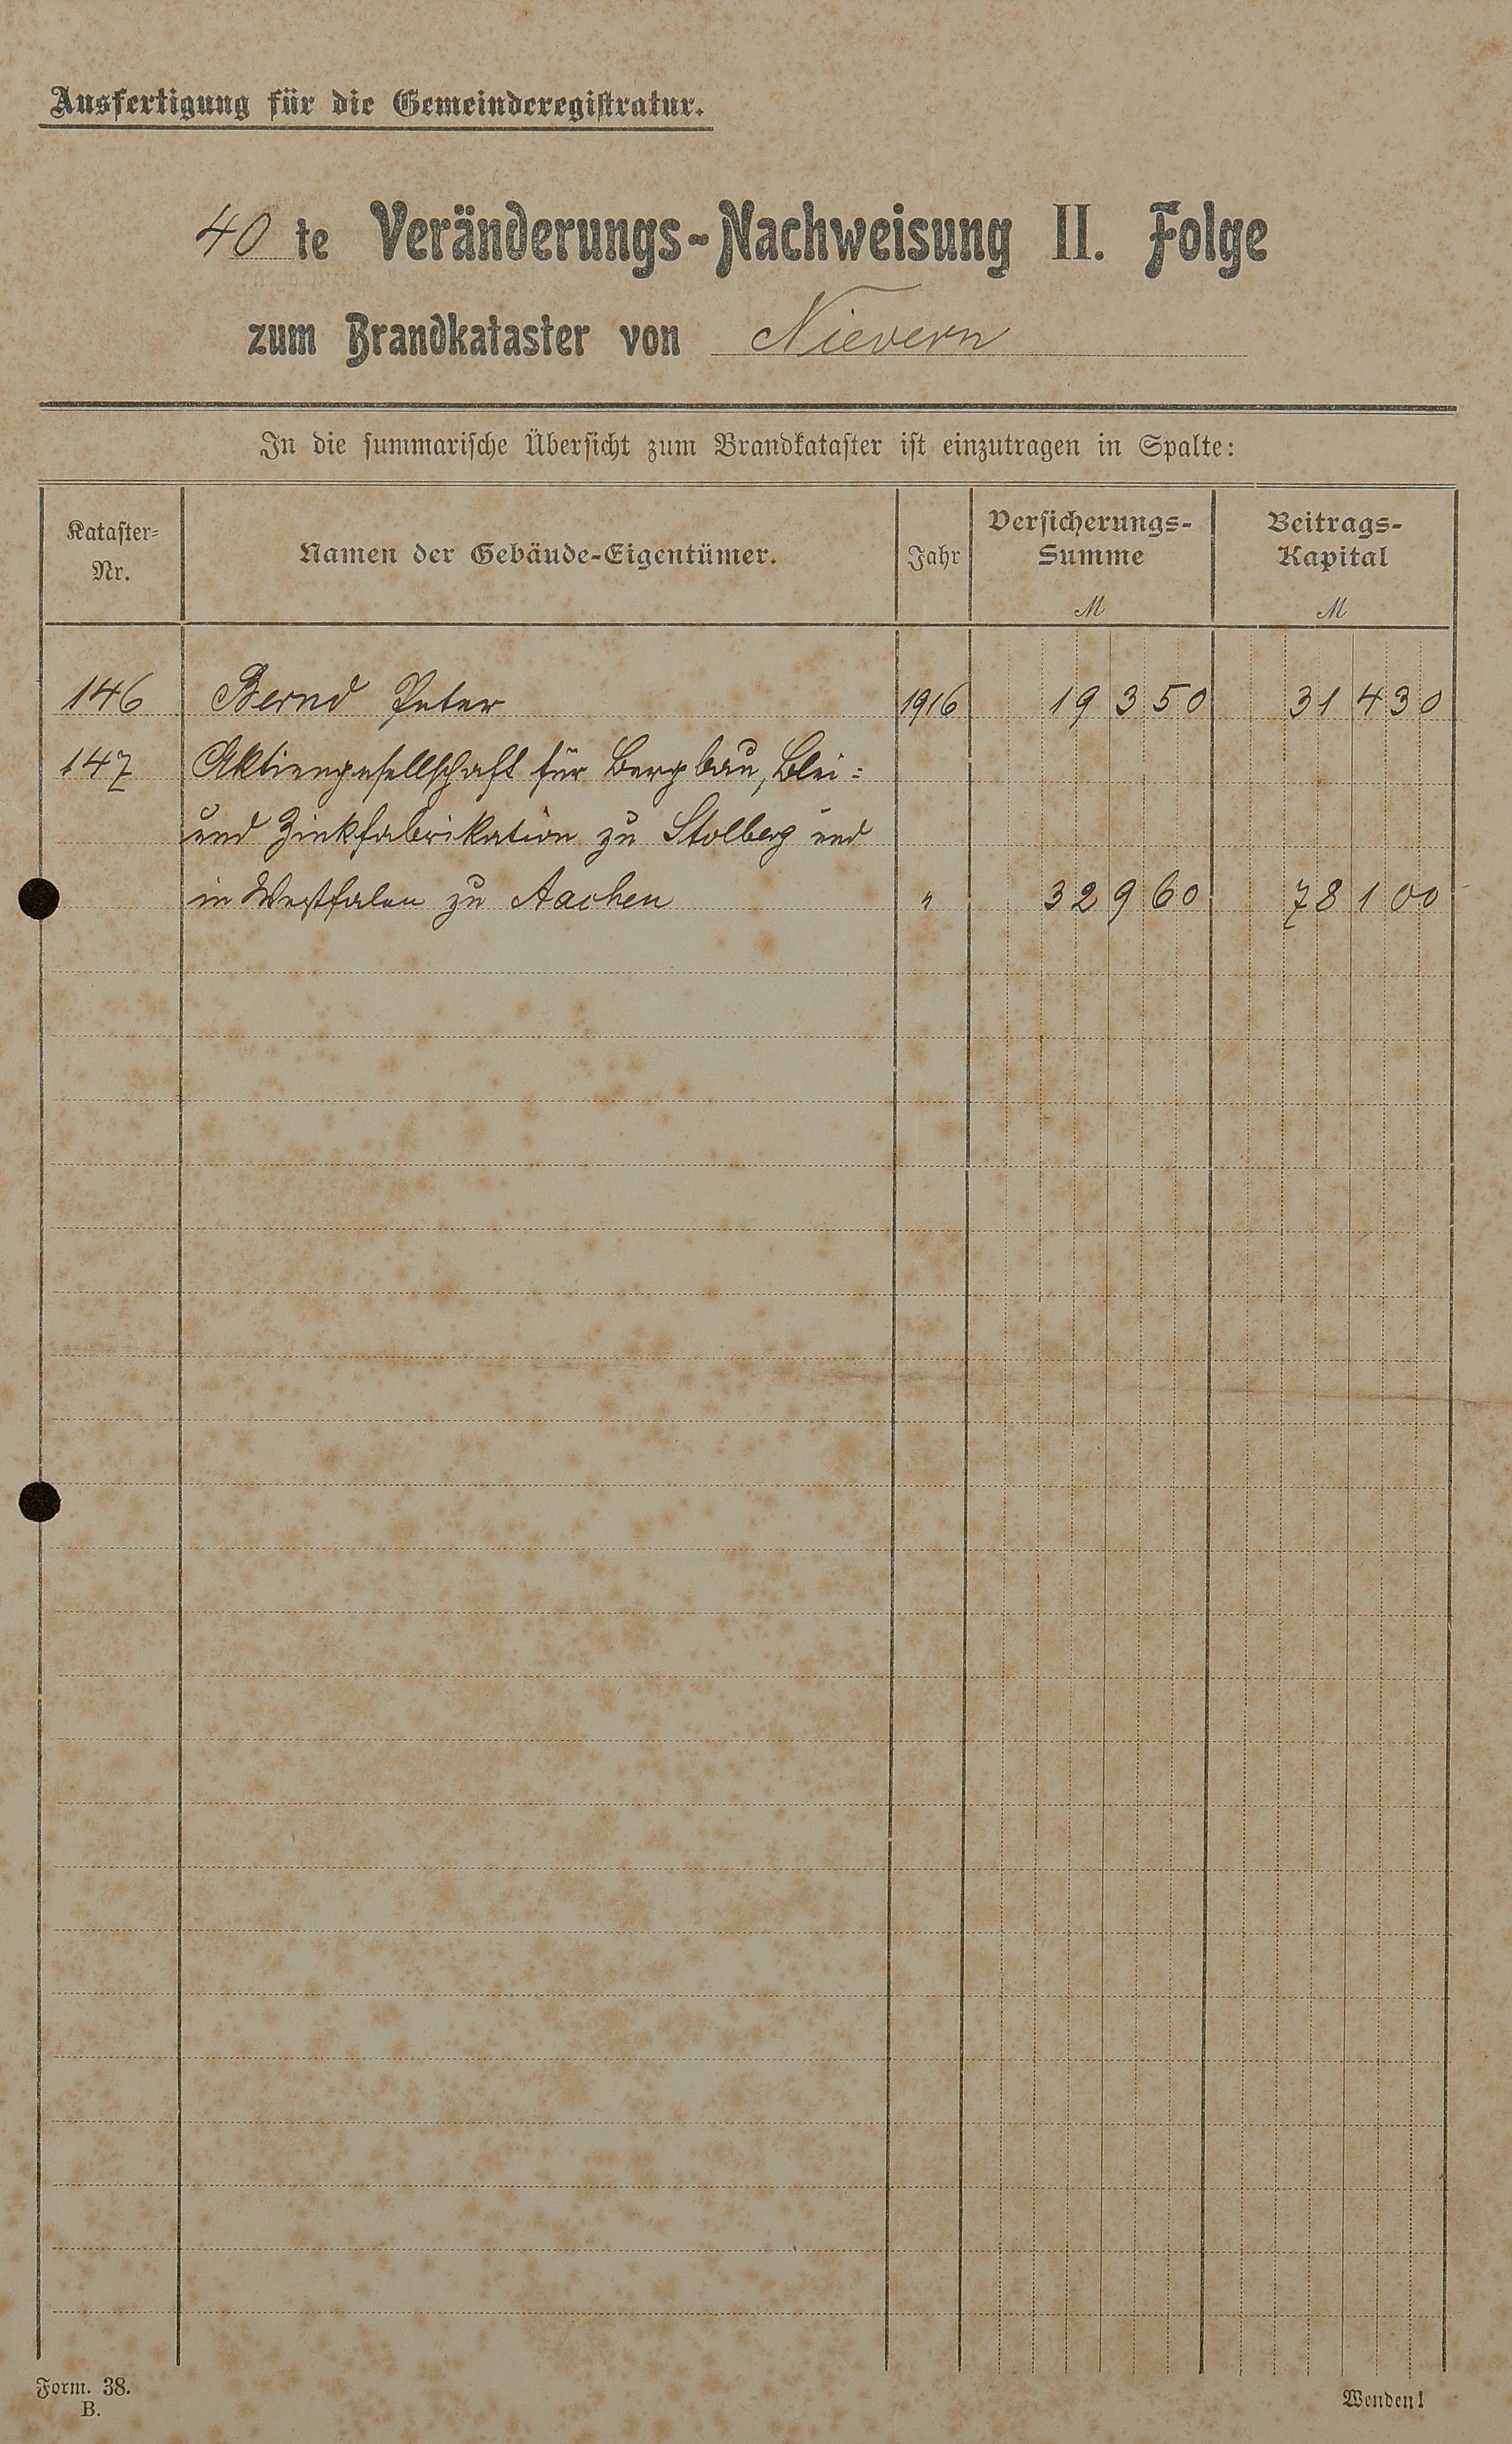 Ausfertigung für die Gemeinderegistratur.
40 te Veränderungs-Nachweisung II. Folge
zum Brandkataster von Nievern
In die summarische Übersicht zum Brandkataster ist einzutragen in Spalte:
Kataster-Nr. Namen der Gebäude-Eigentümer. Jahr Versicherungs-Summe M Beitrags-Kapital M
146 Bernd Peter 1916 19 350 31 430
147 Aktiengesellschaft für Bergbau, Blei-
und Zinkfabrikation zu Stolberg und
in Westfalen zu Aachen " 32 960 78 100
Form. 38.
B.
Wenden!